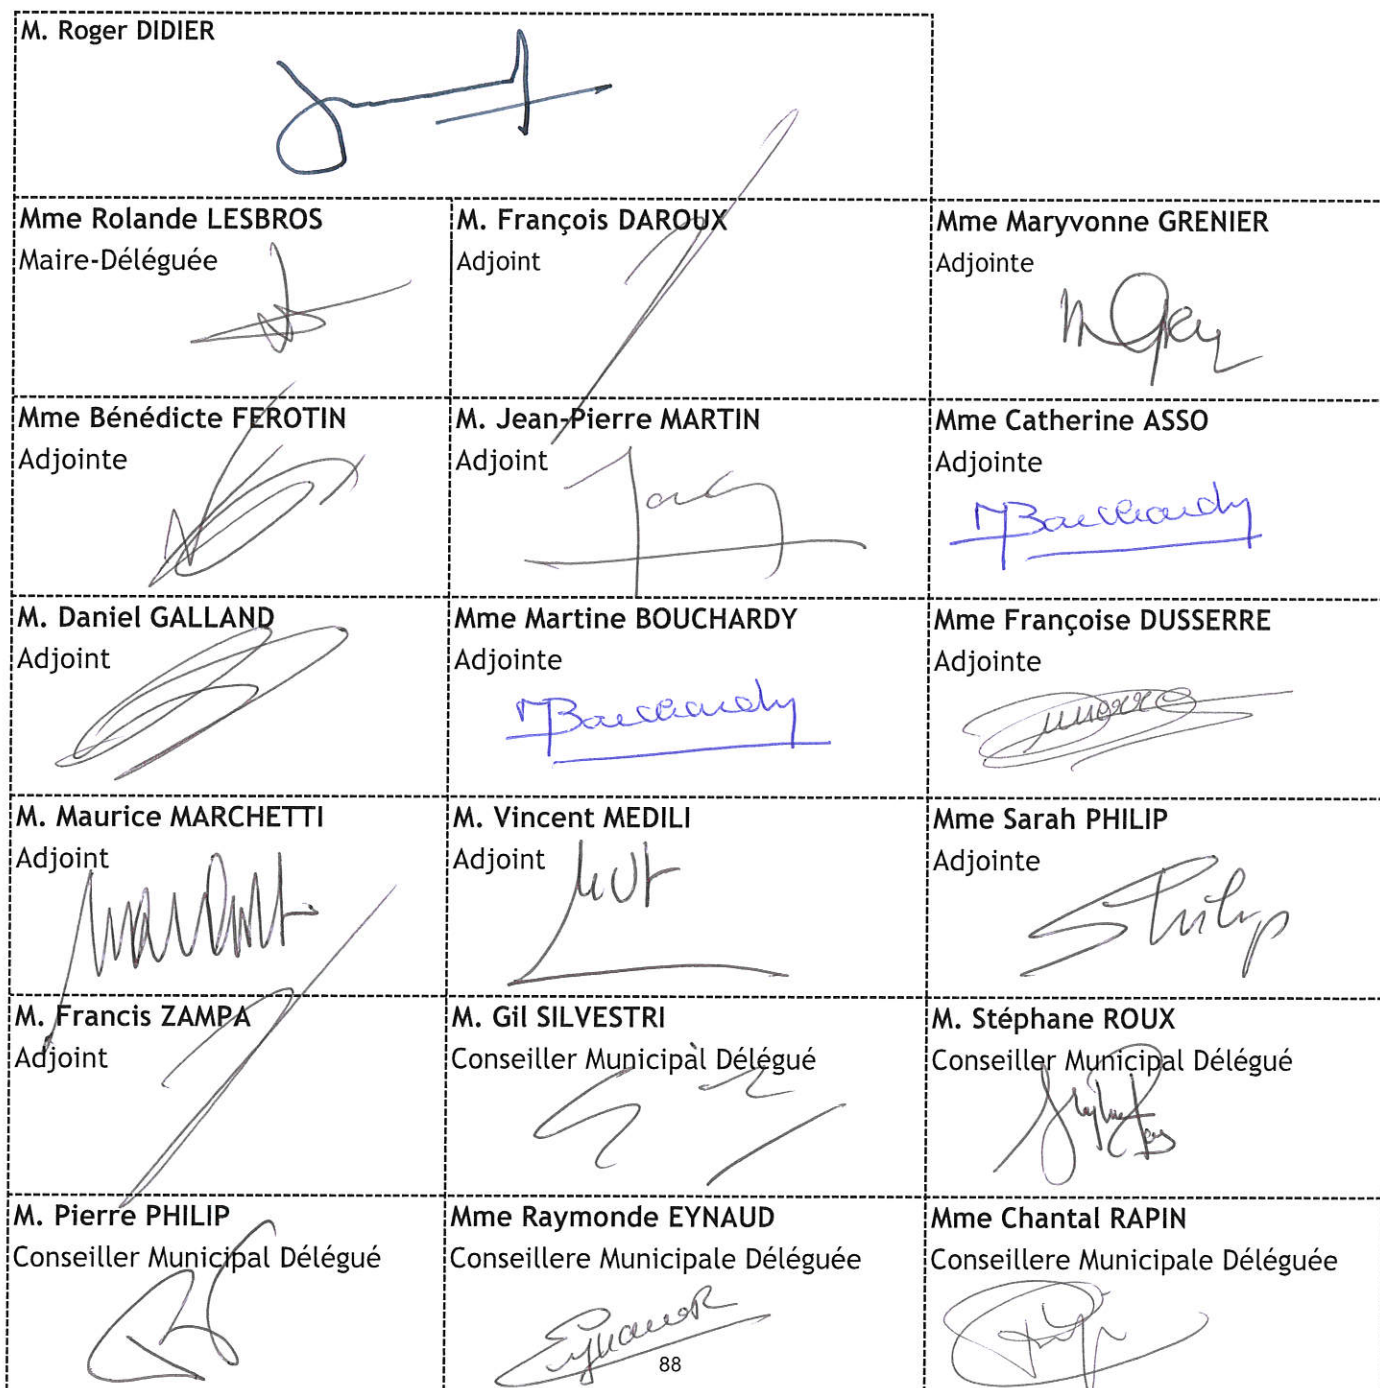 M. Roger DIDIER
Mme Rolande LESBROS
Maire-Déléguée
M. François DAROUX
Adjoint
Mme Maryvonne GRENIER
Adjointe
Mme Bénédicte FEROTIN
Adjointe
M. Jean-Pierre MARTIN
Adjoint
Mme Catherine ASSO
Adjointe
MBouchardy
M. Daniel GALLAND
Adjoint
Mme Martine BOUCHARDY
Adjointe
MBouchardy
Mme Françoise DUSSERRE
Adjointe
M. Maurice MARCHETTI
Adjoint
M. Vincent MEDILI
Adjoint
Mme Sarah PHILIP
Adjointe
SPhilip
M. Francis ZAMPA
Adjoint
M. Gil SILVESTRI
Conseiller Municipal Délégué
M. Stéphane ROUX
Conseiller Municipal Délégué
M. Pierre PHILIP
Conseiller Municipal Délégué
Mme Raymonde EYNAUD
Conseillere Municipale Déléguée
Mme Chantal RAPIN
Conseillere Municipale Déléguée
88